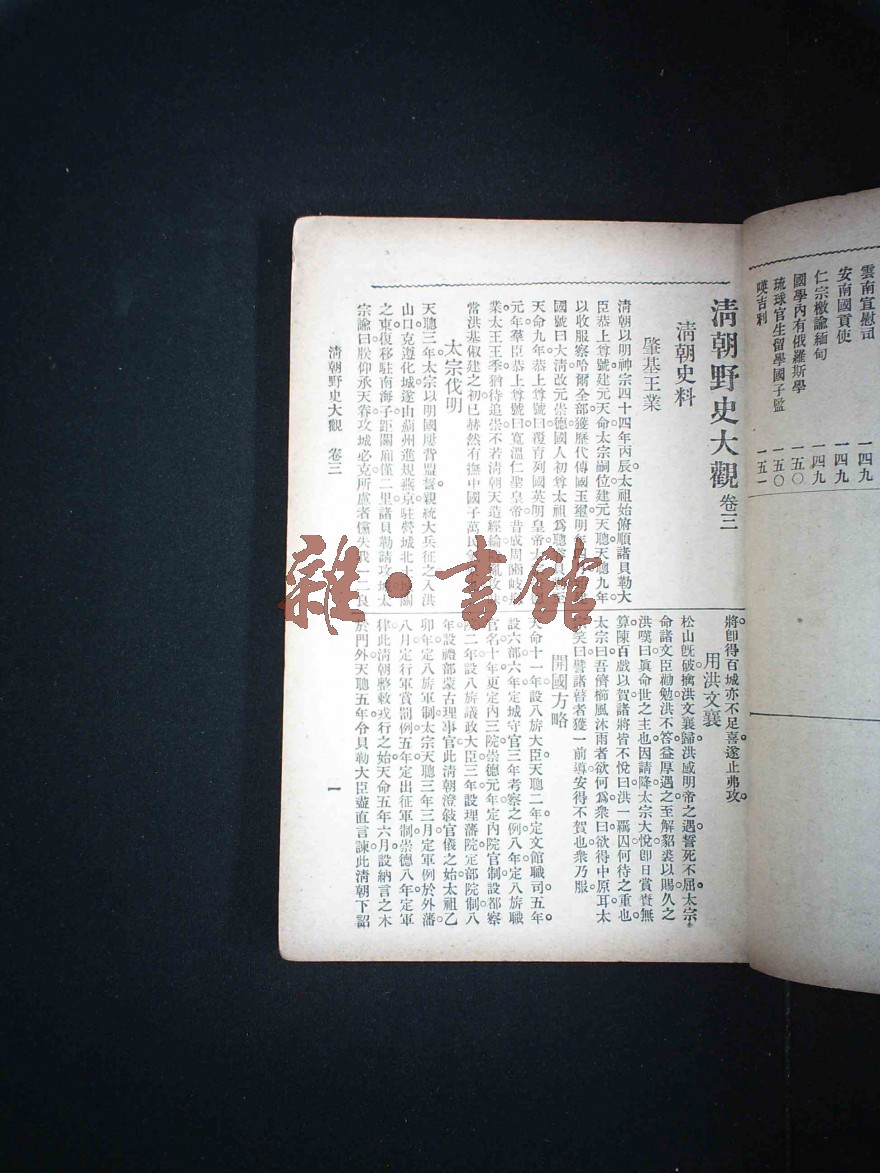 雲南宣慰司 一四九
安南國貢使 一四九
仁宗檄諭緬甸 一四九
國學內有俄羅斯學 一五〇
琉球官生留學國子監 一五〇
暎吉利 一五一
清朝野史大觀 卷三
清朝史料
肇基王業
清朝以明神宗四十四年丙辰太祖始俯順諸貝勒大
臣恭上尊號建元天命太宗嗣位建元天聰天聰九年
以收服察哈爾全部獲歷代傳國玉璽明年
國號曰大清改元崇德國人初尊太祖爲聰
天命九年恭上尊號曰覆育列國英明皇帝
元年羣臣恭上尊號曰寬溫仁聖皇帝昔成周
業太王王季猶待追崇不若清朝天造經綸
當洪基俶建之初已赫然有撫中國子萬民
太宗伐明
天聰三年太宗以明國屢背盟誓親統大兵征之入洪
山口克遵化城遂由薊州進規燕京駐營城北
之東復移駐南海子距關廂僅二里諸貝勒請攻城太
宗諭曰朕仰承天眷攻城必克所慮者儻失我一二良
將即得百城亦不足喜遂止弗攻
用洪文襄
松山旣破擒洪文襄歸洪感明帝之遇誓死不屈太宗
命諸文臣勸勉洪不答益厚遇之至解貂裘以賜久之
洪嘆曰眞命世之主也因請降太宗大悅即日賞賚無
算陳百戲以賀諸將皆不悅曰洪一羈囚何待之重也
太宗曰吾儕櫛風沐雨者欲何爲衆曰欲得中原耳太
笑曰譬諸瞽者獲一前導安得不賀也衆乃服
開國方略
天命十一年設八旂大臣天聰二年定文館職司五年
設六部六年定城守官三年考察之例八年定八旂職
官名十年更定內三院崇德元年定內院官制設都察
二年設八旂議政大臣三年設理藩院定部院制八
年設禮部蒙古理事官此清朝澄敍官儀之始太祖乙
卯年定八旂軍制太宗天聰三年三月定軍例於外藩
八月定行軍賞罰例五年定出征軍制崇德八年定軍
律此清朝整敕戎行之始天命五年六月設納言之木
於門外天聰五年令貝勒大臣盡直言諫此清朝下詔
清朝野史大觀 卷三
一
雜·書館